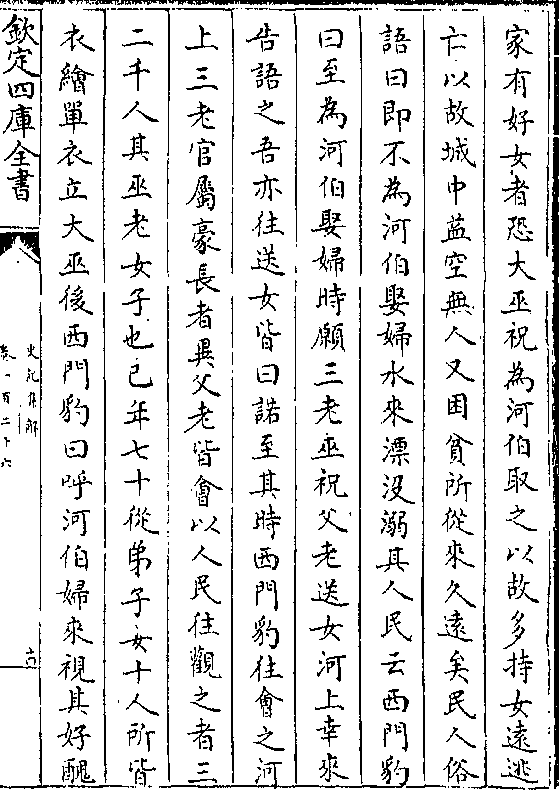 家有好女者恐大巫祝為河伯取之以故多持女遠逃
亡以故城中益空無人又困貧所從來久遠矣民人俗
語曰即不為河伯娶婦水來漂没溺其人民云西門豹
曰至為河伯娶婦時願三老巫祝父老送女河上幸來
告語之吾亦往送女皆曰諾至其時西門豹往會之河
上三老官屬豪長者里父老皆會以人民往觀之者三
二千人其巫老女子也已年七十從弟子女十人所皆
衣繒單衣立大巫後西門豹曰呼河伯婦來視其好醜
欽定四庫全書
史記集解
卷一百二十六